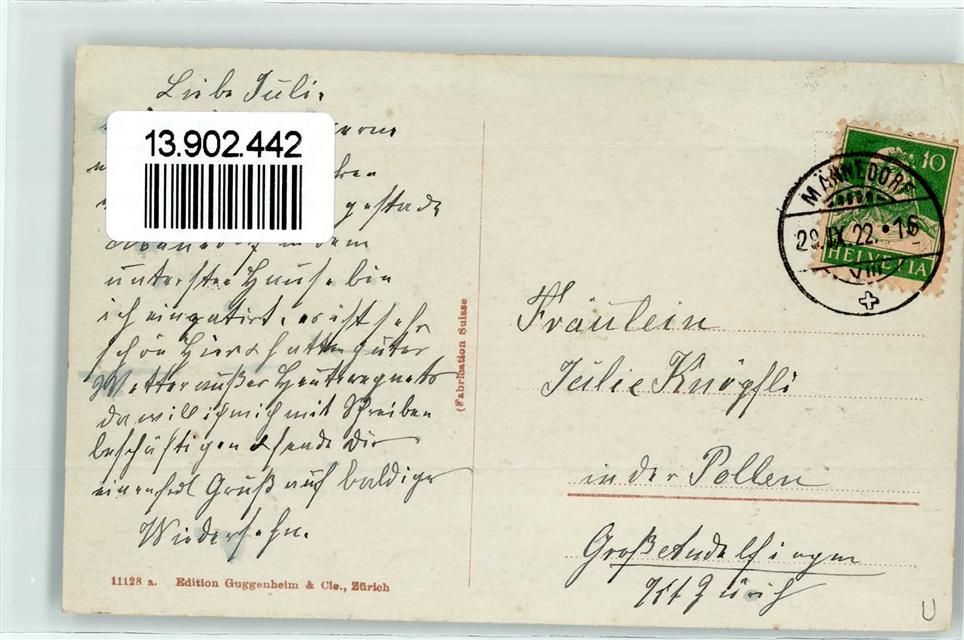 Liebe Juli.
13.902.442
gestade
in dem
untersten Hause bin
ich einquatirt, es ist sehr
schön Hier & hatten guter
Wetter außer Heute regnets
da will ich mich mit Schreiben
beschäftigen & sende Dir
einen hrzl Gruß auf baldiges
Wiedersehn.
11128 a. Edition Guggenheim & Cie., Zürich
(Fabrication Suisse)
10
HELVETIA
MÄNNEDORF
29.IX.22.•16
VIII
Fräulein
Julie Knöpfli
in der Pollen
Großandelfingen
Kt Zürich
U